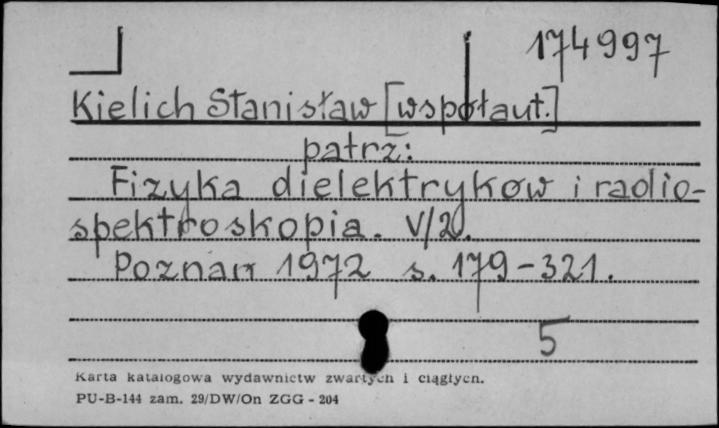 174997
Kielich Stanisław [współaut.]
patrz:
Fizyka dielektryków i radio-
spektroskopia. V/2.
Poznań 1972 s. 179-321.
5
Karta katalogowa wydawnictw zwartych i ciągłych.
PU-B-144 zam. 29/DW/On ZGG - 204